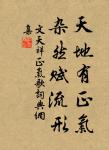 天地有正氣
杂然赋流形
文天祥正氣歌詞典網
集